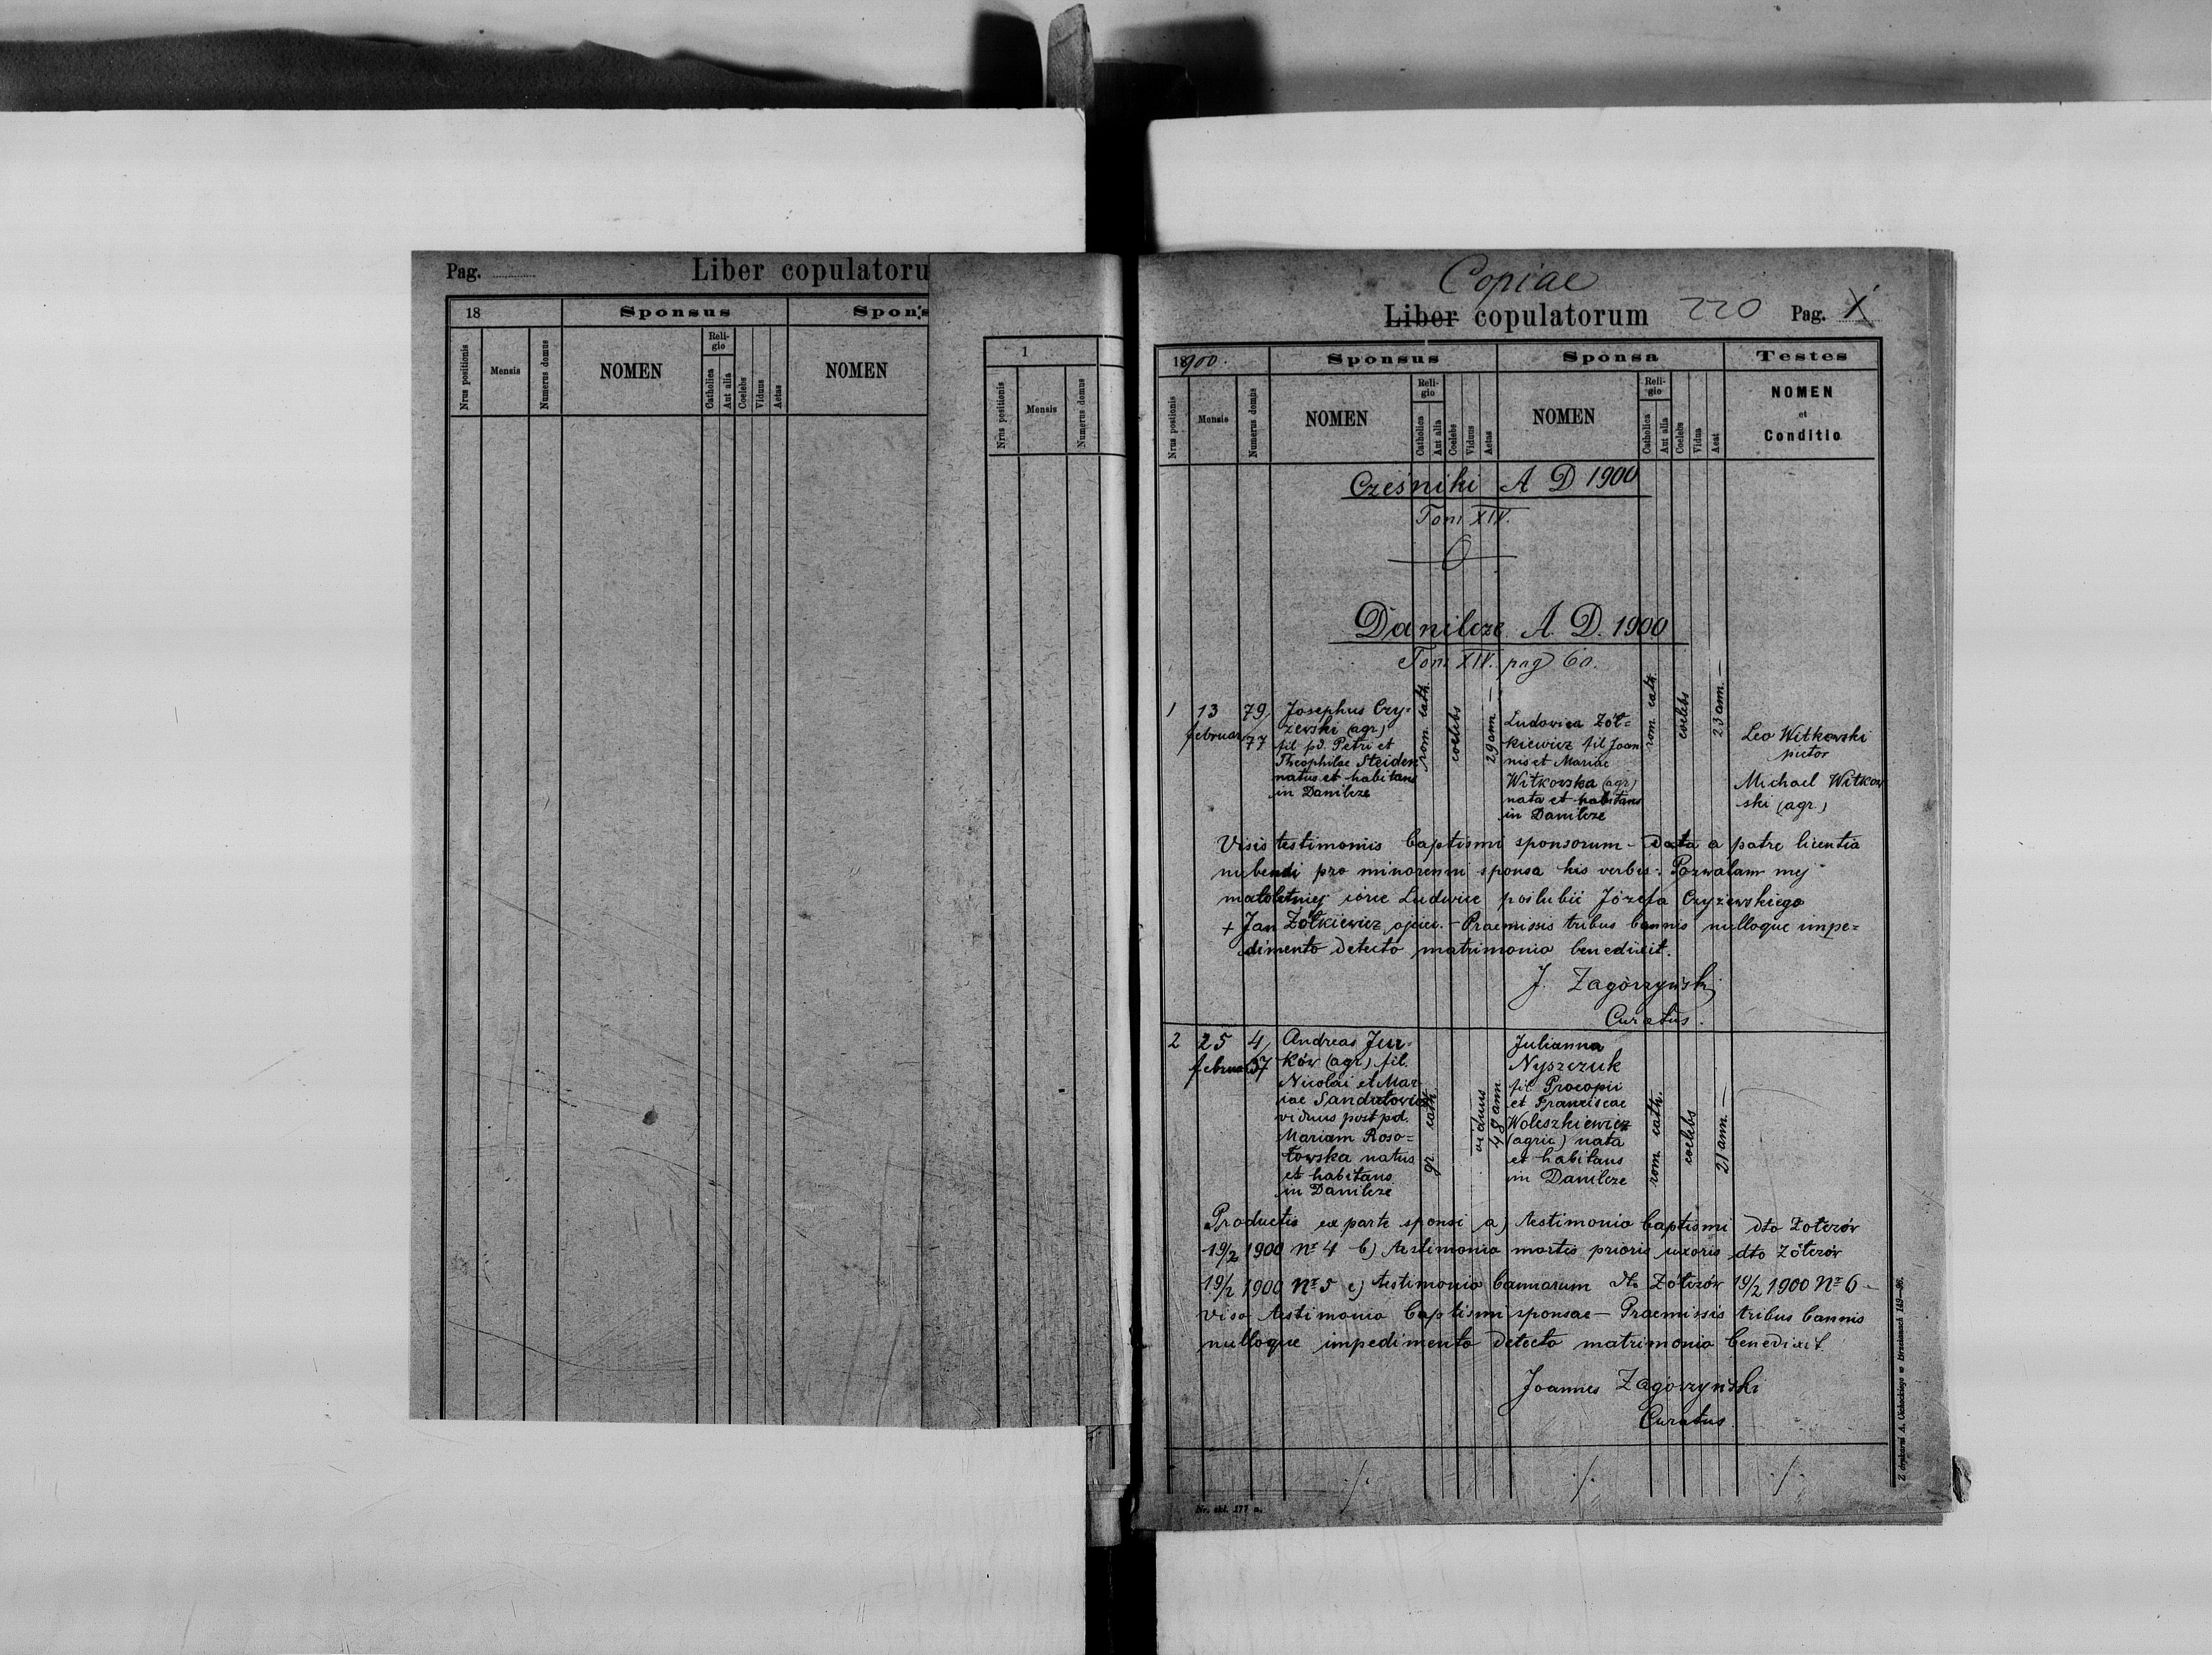 Pag.
Liber copulatoru
18
Sponsus
Spons
Nrus positionis
Mensis
Numerus domus
NOMEN
Reli-
gio
Catholica
Aut alia
Coelebs
Viduus
Aetas
NOMEN
1
Nrus positionis
Mensis
Numerus domus
Copiae
Liber copulatorum
220
Pag. 1
1900.
Sponsus
Sponsa
Testes
Nrus postionis
Mensis
Numerus domus
NOMEN
Reli-
gio
Catholica
Aut alia
Coelebs
Viduus
Aetas
NOMEN
Reli-
gio
Catholica
Aut alia
Coelebs
Vidua
Aeat
NOMEN
et
Conditio
Cześniki A D 1900
Tom XIV.
Danilcze A. D. 1900
Tom XIV. pag 60.
1
13
februar
79/
77
Josephus Czy-
żewski (agr)
fil pd. Petri et
Theophilae Steiden
natus et habitans
in Danilcze
rom. cath.
coelebs
29 ann —
Ludovica Żół=
kiewicz fil Joan
nis et Mariae
Witkowska (agr)
nata et habitans
in Danilcze
rom. cath.
coelebs
23 ann. —
Leo Witkowski
pictor
Michael Witkow
ski (agr.)
Visis testimoniis baptismi sponsorum - Data a patre licentia
nubendi pro minorenni sponsa his verbis: Pozwalam mej
małoletniej córce Ludwice poślubić Józefa Czyżewskiego
+ Jan Żółkiewicz, ojciec. - Praemissis tribus bannis nulloque impe=
dimento detecto matrimonio benedixit.
J. Zagórzyński
Curatus.
2
25
februar
4/
57
Andreas Jur-
ków (agr) fil.
Nicolai et Mar
iae Sandulowicz
viduus post pd.
Mariam Roso=
łowska natus
et habitans
in Danilcze
gr. cath.
viduus
48 ann
Julianna
Nyszczuk
fil. Procopii
et Franciscae
Woleszkiewicz
(agric) nata
et habitans
in Danilcze
rom cath.
coelebs
21 ann. —
Productis ex parte sponsi a) testimonio baptismi dto Żołczów
19/2 1900 Nr 4 b) testimonio mortis prioris uxoris dto Żółczów
19/2 1900 Nr 5 c) testimonio bannorum dto Żółczów 19/2 1900 Nr 6 -
viso testimonio baptismi sponsae - Praemissis tribus bannis
nulloque impedimento detecto matrimonio benedixit.
Joannes Zagórzyński
Curatus.
Z drukarni A. Uchackiego w Brzeżanach 149—96.
Nr. skł. 177 a.